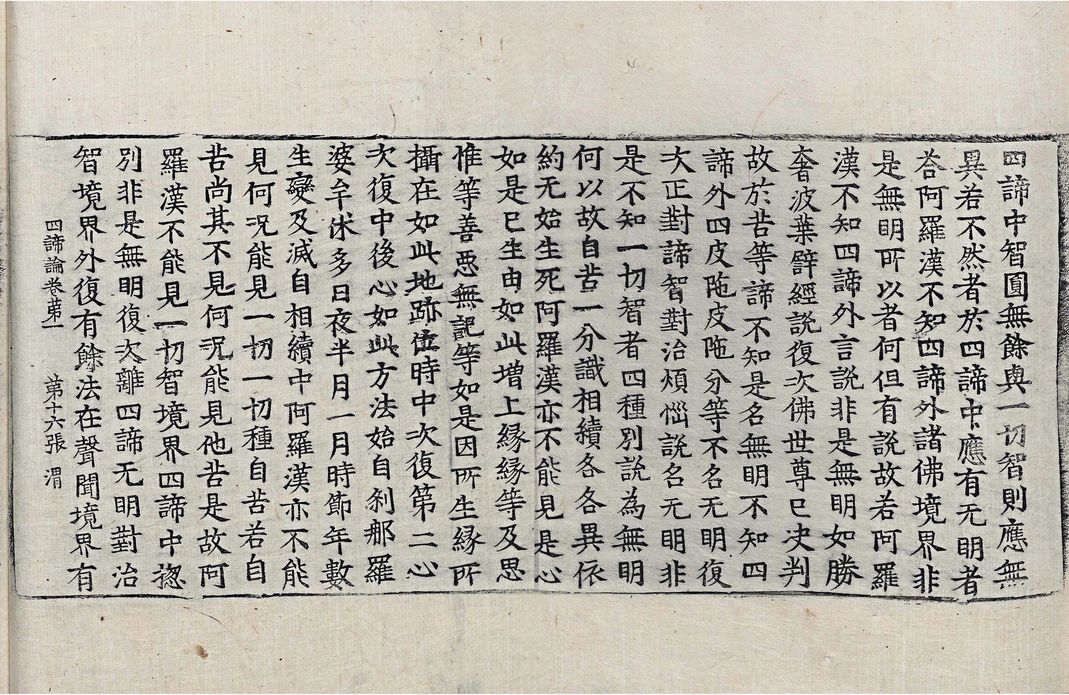 四諦中智圓無餘與一切智則應無
異若不然者於四諦中應有无明者
荅阿羅漢不知四諦外諸佛境界非
是無明所以者何但有說故若阿羅
漢不知四諦外言說非是無明如勝
奢波葉辟經說復次佛世尊已决判
故於苦等諦不知是名無明不知四
諦外四皮陁皮陁分等不名无明復
次正對諦智對治煩惱說名无明非
是不知一切智者四種別說為無明
何以故自苦一分識相續各各異依
約无始生死阿羅漢亦不能見是心
如是已生由如此增上縁縁等及思
惟等善惡無記等如是因所生縁所
攝在如此地跡位時中次復第二心
次復中後心如此方法始自刹那羅
婆牟休多日夜半月一月時節年數
生變及滅自相續中阿羅漢亦不能
見何況能見一切一切種自苦若自
苦尚其不見何況能見他苦是故阿
羅漢不能見一切智境界四諦中揔
別非是無明復次離四諦无明對治
智境界外復有餘法在聲聞境界有
四諦論卷第一　第十六張　渭